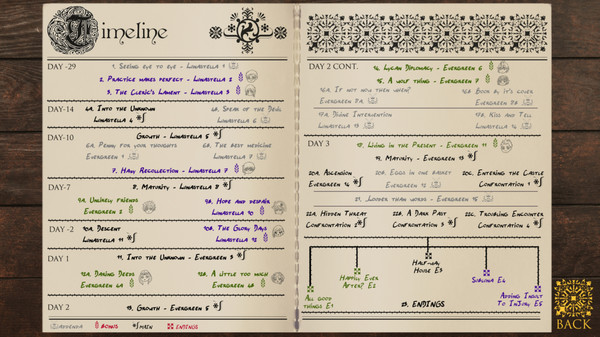 Timeline
DAY -29
1. Seeing eye to eye - Lunastella 1
2. Practice makes perfect - Lunastella 2
3. The Cleric's Lament - Lunastella 3
DAY-14
4A. Into the Unknown
Lunastella 4
4B. Speak of the Devil
Lunastella 6
DAY-10
Growth - Lunastella 5
6A. Penny for your thoughts
Evergreen 1
6B. The best medicine
Lunastella 7
7. Hazy Recollection - Lunastella 8
DAY-7
8. Maturity - Lunastella 9
9A. Unlikely Friends
Evergreen 2
9B. Hope and despair
Lunastella 10
DAY -2
10A. Descent
Lunastella 11
10B. The Glory Days
Lunastella 12
DAY 1
11. Into the Unknown - Evergreen 3
12A. Daring Deeds
Evergreen 4A
12B. A little too much
Evergreen 4B
DAY 2
13. Growth - Evergreen 5
Addenda
Bonus
Main
Endings
DAY 2 CONT.
14. Lycan Diplomacy - Evergreen 6
15. A wolf thing - Evergreen 7
16A. If not now then when?
Evergreen
16B. Book by it's cover
Evergreen
17A. Divine Intervention
Lunastella 13
17B. Kiss and Tell
Lunastella 14
DAY 3
18. Living in the Present - Evergreen 11
19. Maturity - Evergreen 13
20A. Ascension
Evergreen 14
20B. Eggs in one basket
Evergreen
20C. Entering the Castle
Confrontation 1
21. Louder than words - Evergreen
22A. Hidden Threat
Confrontation 2
22B. A Dark Past
Confrontation 3
22C. Troubling Encounter
Confrontation 4
Half-way
House E3
Happily Ever
After? E2
Sublima E4
All good
things E1
23. ENDINGS
Adding Insult
To Injury E5
BACK